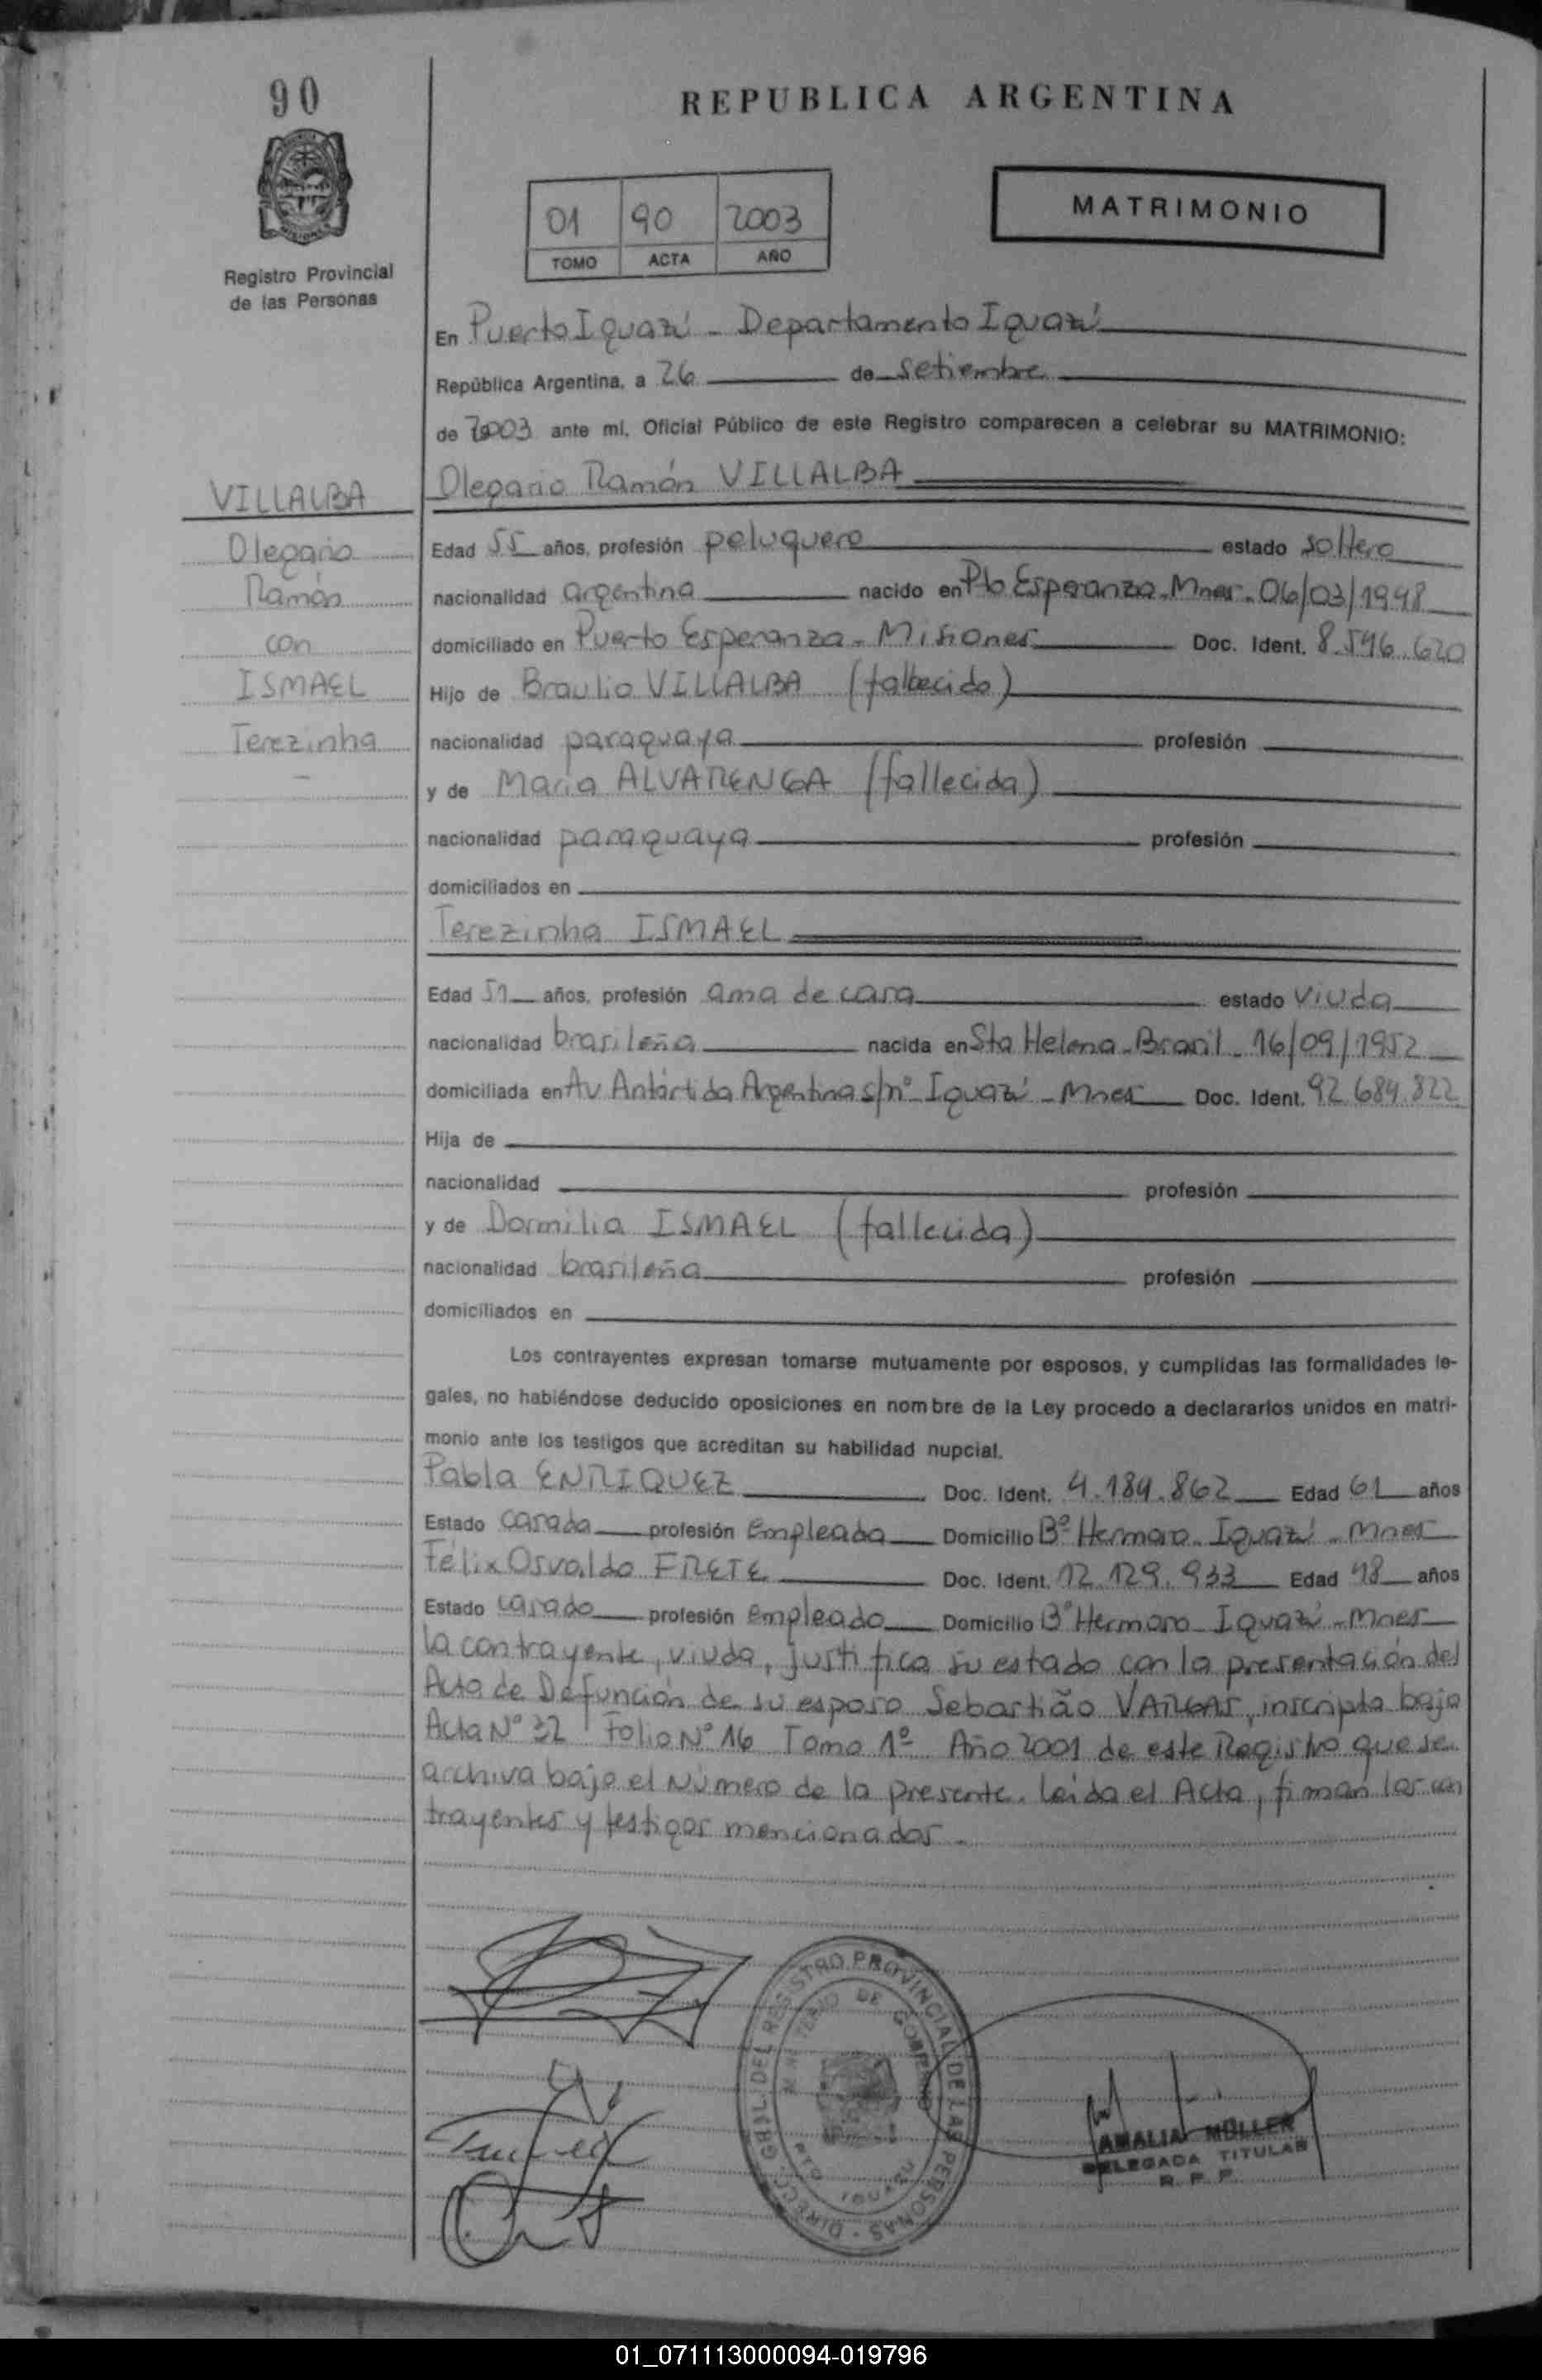 90
REPUBLICA ARGENTINA
Registro Provincial
de las Personas
01 90 2003
TOMO ACTA AÑO
MATRIMONIO
En Puerto Iguazú - Departamento Iguazú
República Argentina, a 26 de setiembre
de 2003 ante mí, Oficial Público de este Registro comparecen a celebrar su MATRIMONIO:
VILLALBA
Olegario
Ramón
con
ISMAEL
Terezinha
Olegario Ramón VILLALBA
Edad 55 años, profesión peluquero estado soltero
nacionalidad argentina nacido en Pto Esperanza - Mnes - 06/03/1948
domiciliado en Puerto Esperanza - Misiones Doc. Ident. 8.546.620
Hijo de Braulio VILLALBA (fallecido)
nacionalidad paraguaya profesión
y de María ALVARENGA (fallecida)
nacionalidad paraguaya profesión
domiciliados en
Terezinha ISMAEL
Edad 51 años, profesión ama de casa estado viuda
nacionalidad brasileña nacida en Sta Helena - Brasil - 16/09/1952
domiciliada en Av Antártida Argentina s/nº Iguazú - Mnes Doc. Ident. 92.684.822
Hija de
nacionalidad profesión
y de Dormilia ISMAEL (fallecida)
nacionalidad brasileña profesión
domiciliados en
Los contrayentes expresan tomarse mutuamente por esposos, y cumplidas las formalidades le-
gales, no habiéndose deducido oposiciones en nombre de la Ley procedo a declararlos unidos en matri-
monio ante los testigos que acreditan su habilidad nupcial.
Pabla ENRIQUEZ Doc. Ident. 4.184.862 Edad 61 años
Estado casada profesión empleada Domicilio Bº Hermoso - Iguazú - Mnes
Félix Osvaldo FRETE Doc. Ident. 12.129.933 Edad 48 años
Estado casado profesión empleado Domicilio Bº Hermoso - Iguazú - Mnes
La contrayente, viuda, justifica su estado con la presentación del
Acta de Defunción de su esposo Sebastião VARGAS, inscripta bajo
Acta Nº 32 Folio Nº 16 Tomo 1º Año 2001 de este Registro que se
archiva bajo el Número de la presente. Leída el Acta, firman los con
trayentes y testigos mencionados.
DIRECC. GRAL. DEL REGISTRO PROVINCIAL DE LAS PERSONAS
MINISTERIO DE GOBIERNO
PTO IGUAZU
AMALIA MÜLLER
DELEGADA TITULAR
R. P. P.
01_071113000094-019796